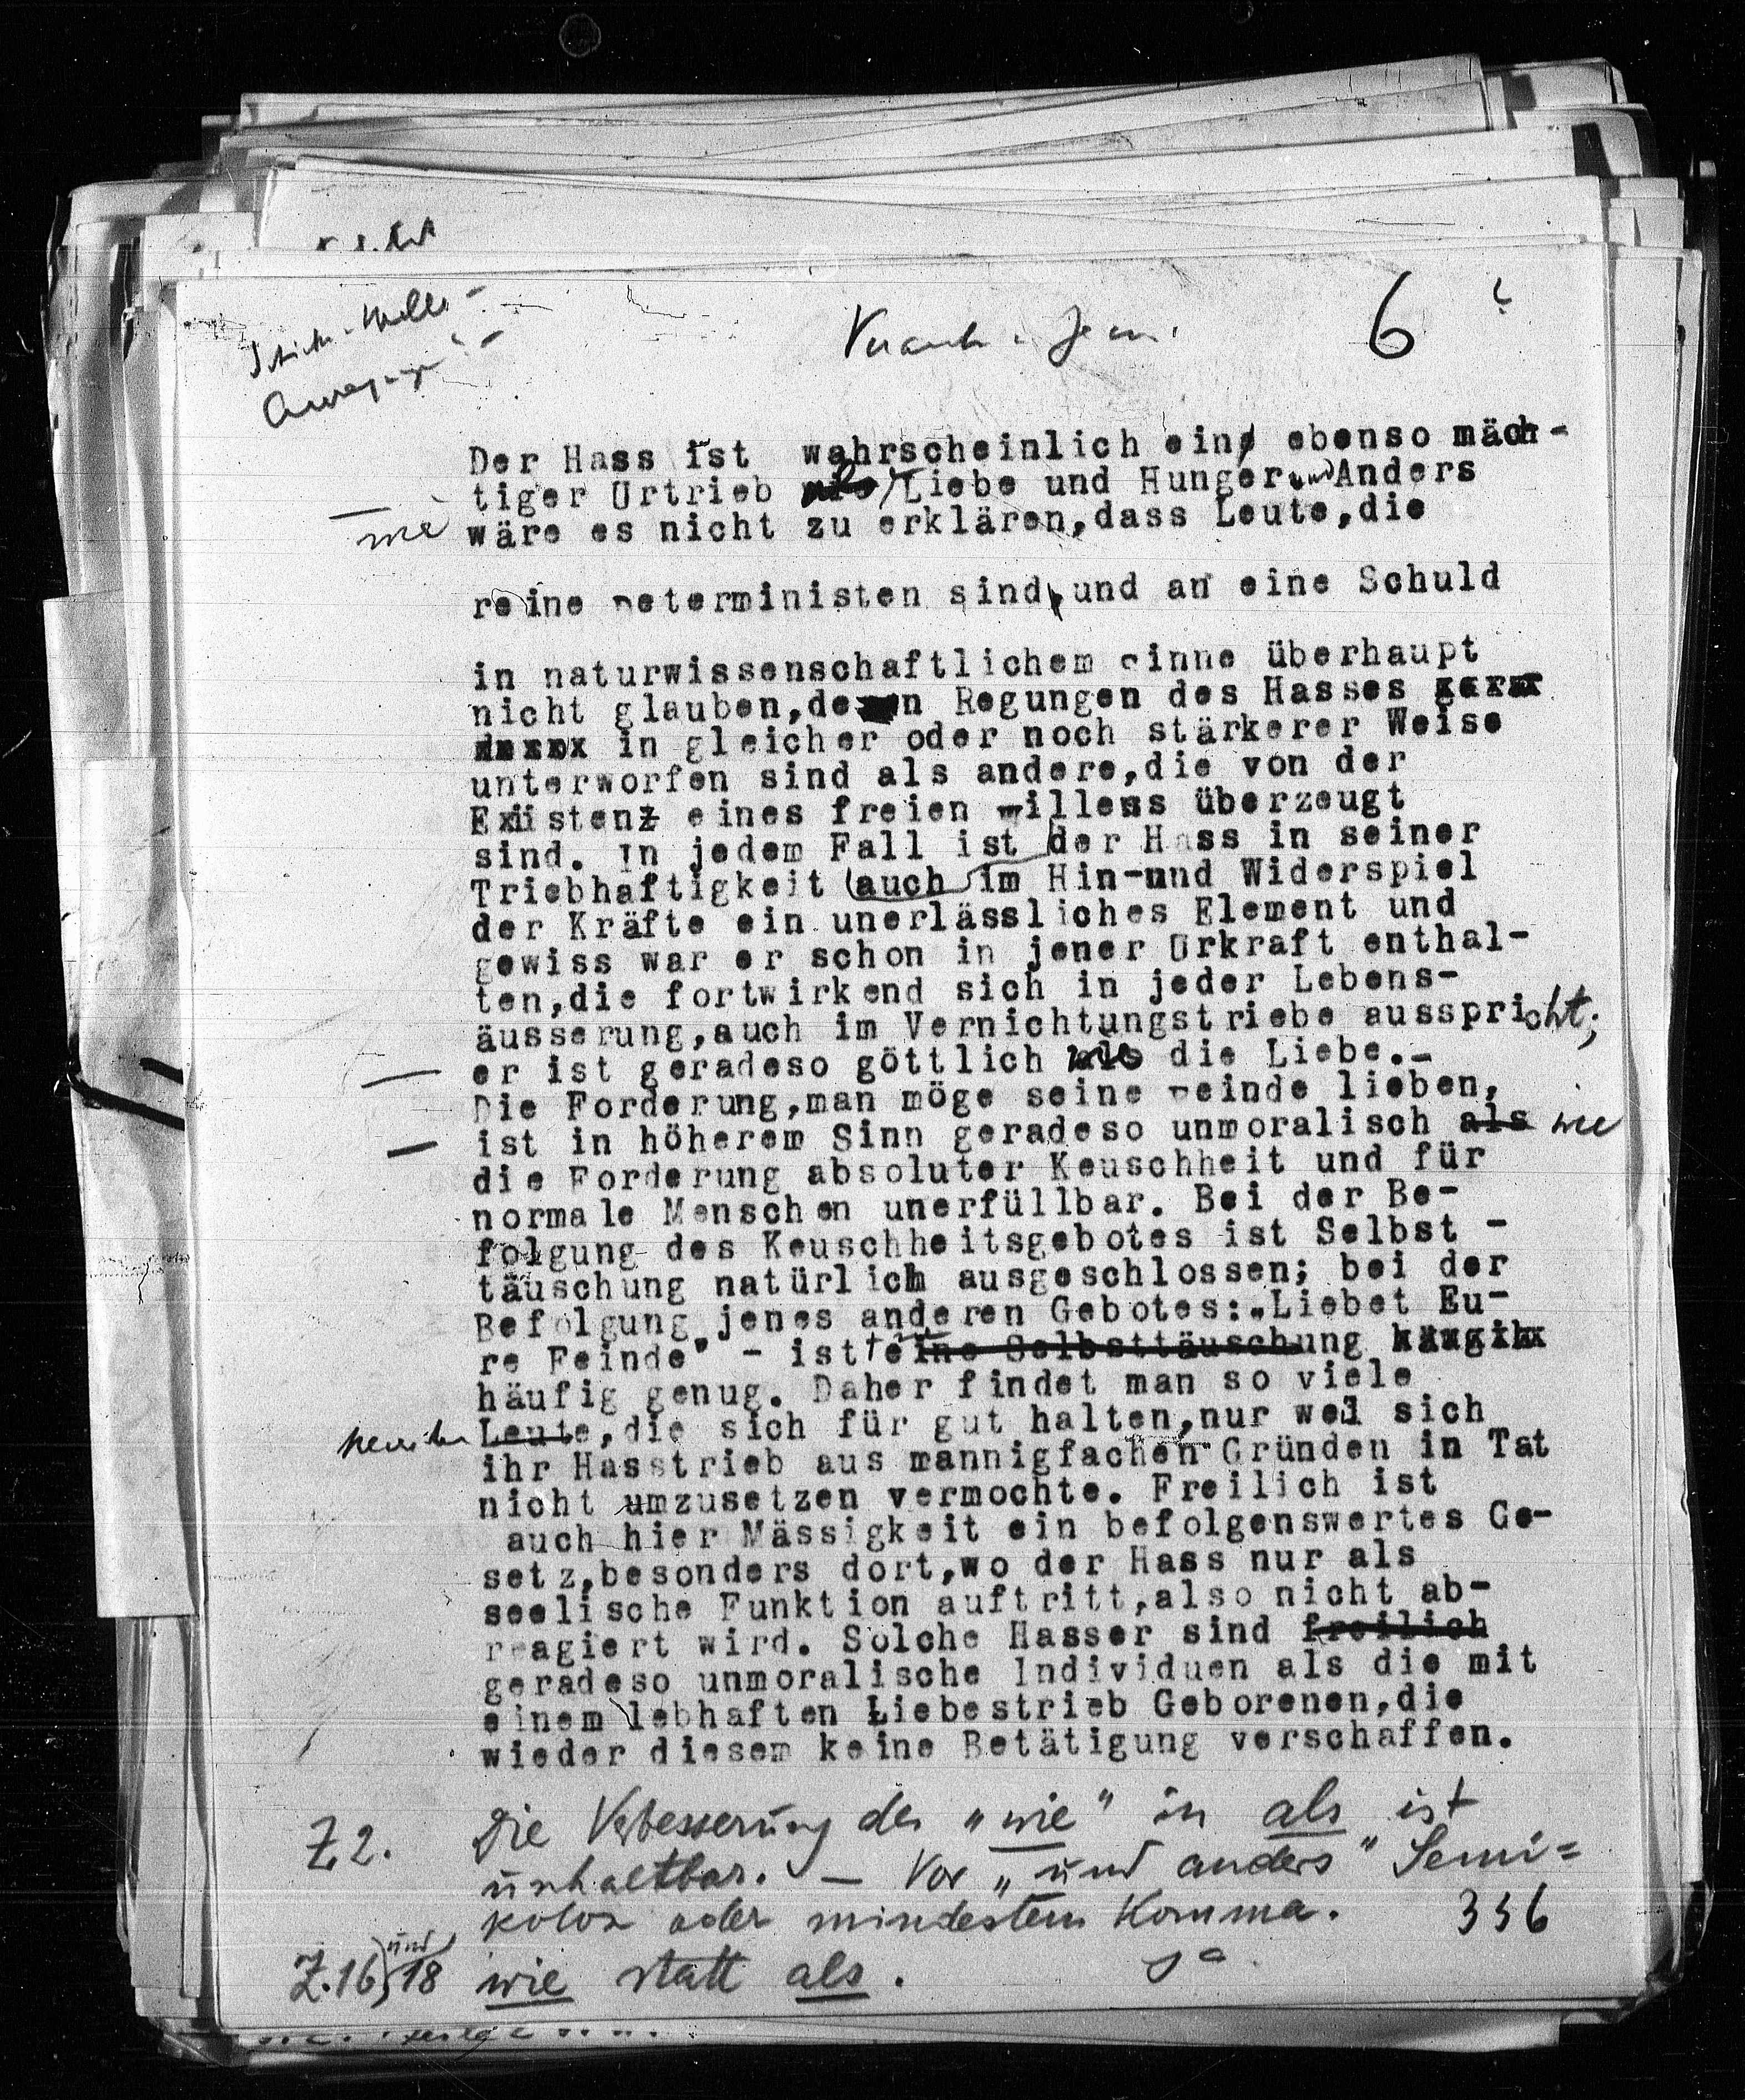 6
Der Hass ist wahrscheinlich ein ebenso mäch-
tiger Urtrieb Liebe und Hunger und Anders
wie
wäre es nicht zu erklären,dass Leute,die
reine Deterministen sind,und an eine Schuld
in naturwissenschaftlichem Sinne überhaupt
nicht glauben,den Regungen des Hasses
in gleicher oder noch stärkerer Weise
unterworfen sind als andere,die von der
Existenz eines freien Willens überzeugt
sind. In jedem Fall ist der Hass in seiner
Triebhaftigkeit auch im Hin-und Widerspiel
der Kräfte ein unerlässliches Element und
gewiss war er schon in jener Urkraft enthal-
ten,die fortwirkend sich in jeder Lebens-
äusserung,auch im Vernichtungstriebe ausspricht;
er ist geradeso göttlich als die Liebe.-
Die Forderung,man möge seine Feinde lieben,
ist in höherem Sinn geradeso unmoralisch als wie
die Forderung absoluter Keuschheit und für
normale Menschen unerfüllbar. Bei der Be-
folgung des Keuschheitsgebotes ist Selbst -
täuschung natürlich ausgeschlossen; bei der
Befolgung jenes anderen Gebotes:„Liebet Eu-
re Feinde" - ist eine Selbsttäuschung
häufig genug. Daher findet man so viele
Leute,die sich für gut halten,nur weil sich
ihr Hasstrieb aus mannigfachen Gründen in Tat
nicht umzusetzen vermochte. Freilich ist
auch hier Mässigkeit ein befolgenswertes Ge-
setz,besonders dort,wo der Hass nur als
seelische Funktion auftritt,also nicht ab-
reagiert wird. Solche Hasser sind freilich
geradeso unmoralische Individuen als die mit
einem lebhaften Liebestrieb Geborenen,die
wieder diesem keine Betätigung verschaffen.
Z2. Die Verbesserung des „wie" in als ist
unhaltbar. — Vor „und anders" Semi=
kolon oder mindestens Komma. 336
Z.16 und 18 wie statt als.